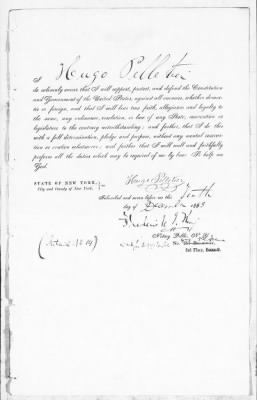 I Hugo Pelletier
do solemnly swear that I will support, protect, and defend the Constitution
and Government of the United States, against all enemies, whether domes-
tic or foreign, and that I will bear true faith, allegiance and loyalty to
the same, any ordinance, resolution, or law of any State, convention or
legislature to the contrary notwithstanding; and further, that I do this
with a full determination, pledge and purpose, without any mental reserva-
tion or evasion whatsoever; and further that I will well and faithfully
perform all the duties which may be required of me by law: So help me
God.
Hugo Pelletier
STATE OF NEW YORK,
City and County of New York,
Subscribed and sworn before me this Tenth
day of December 1863
Frederick
Notary Public
No.